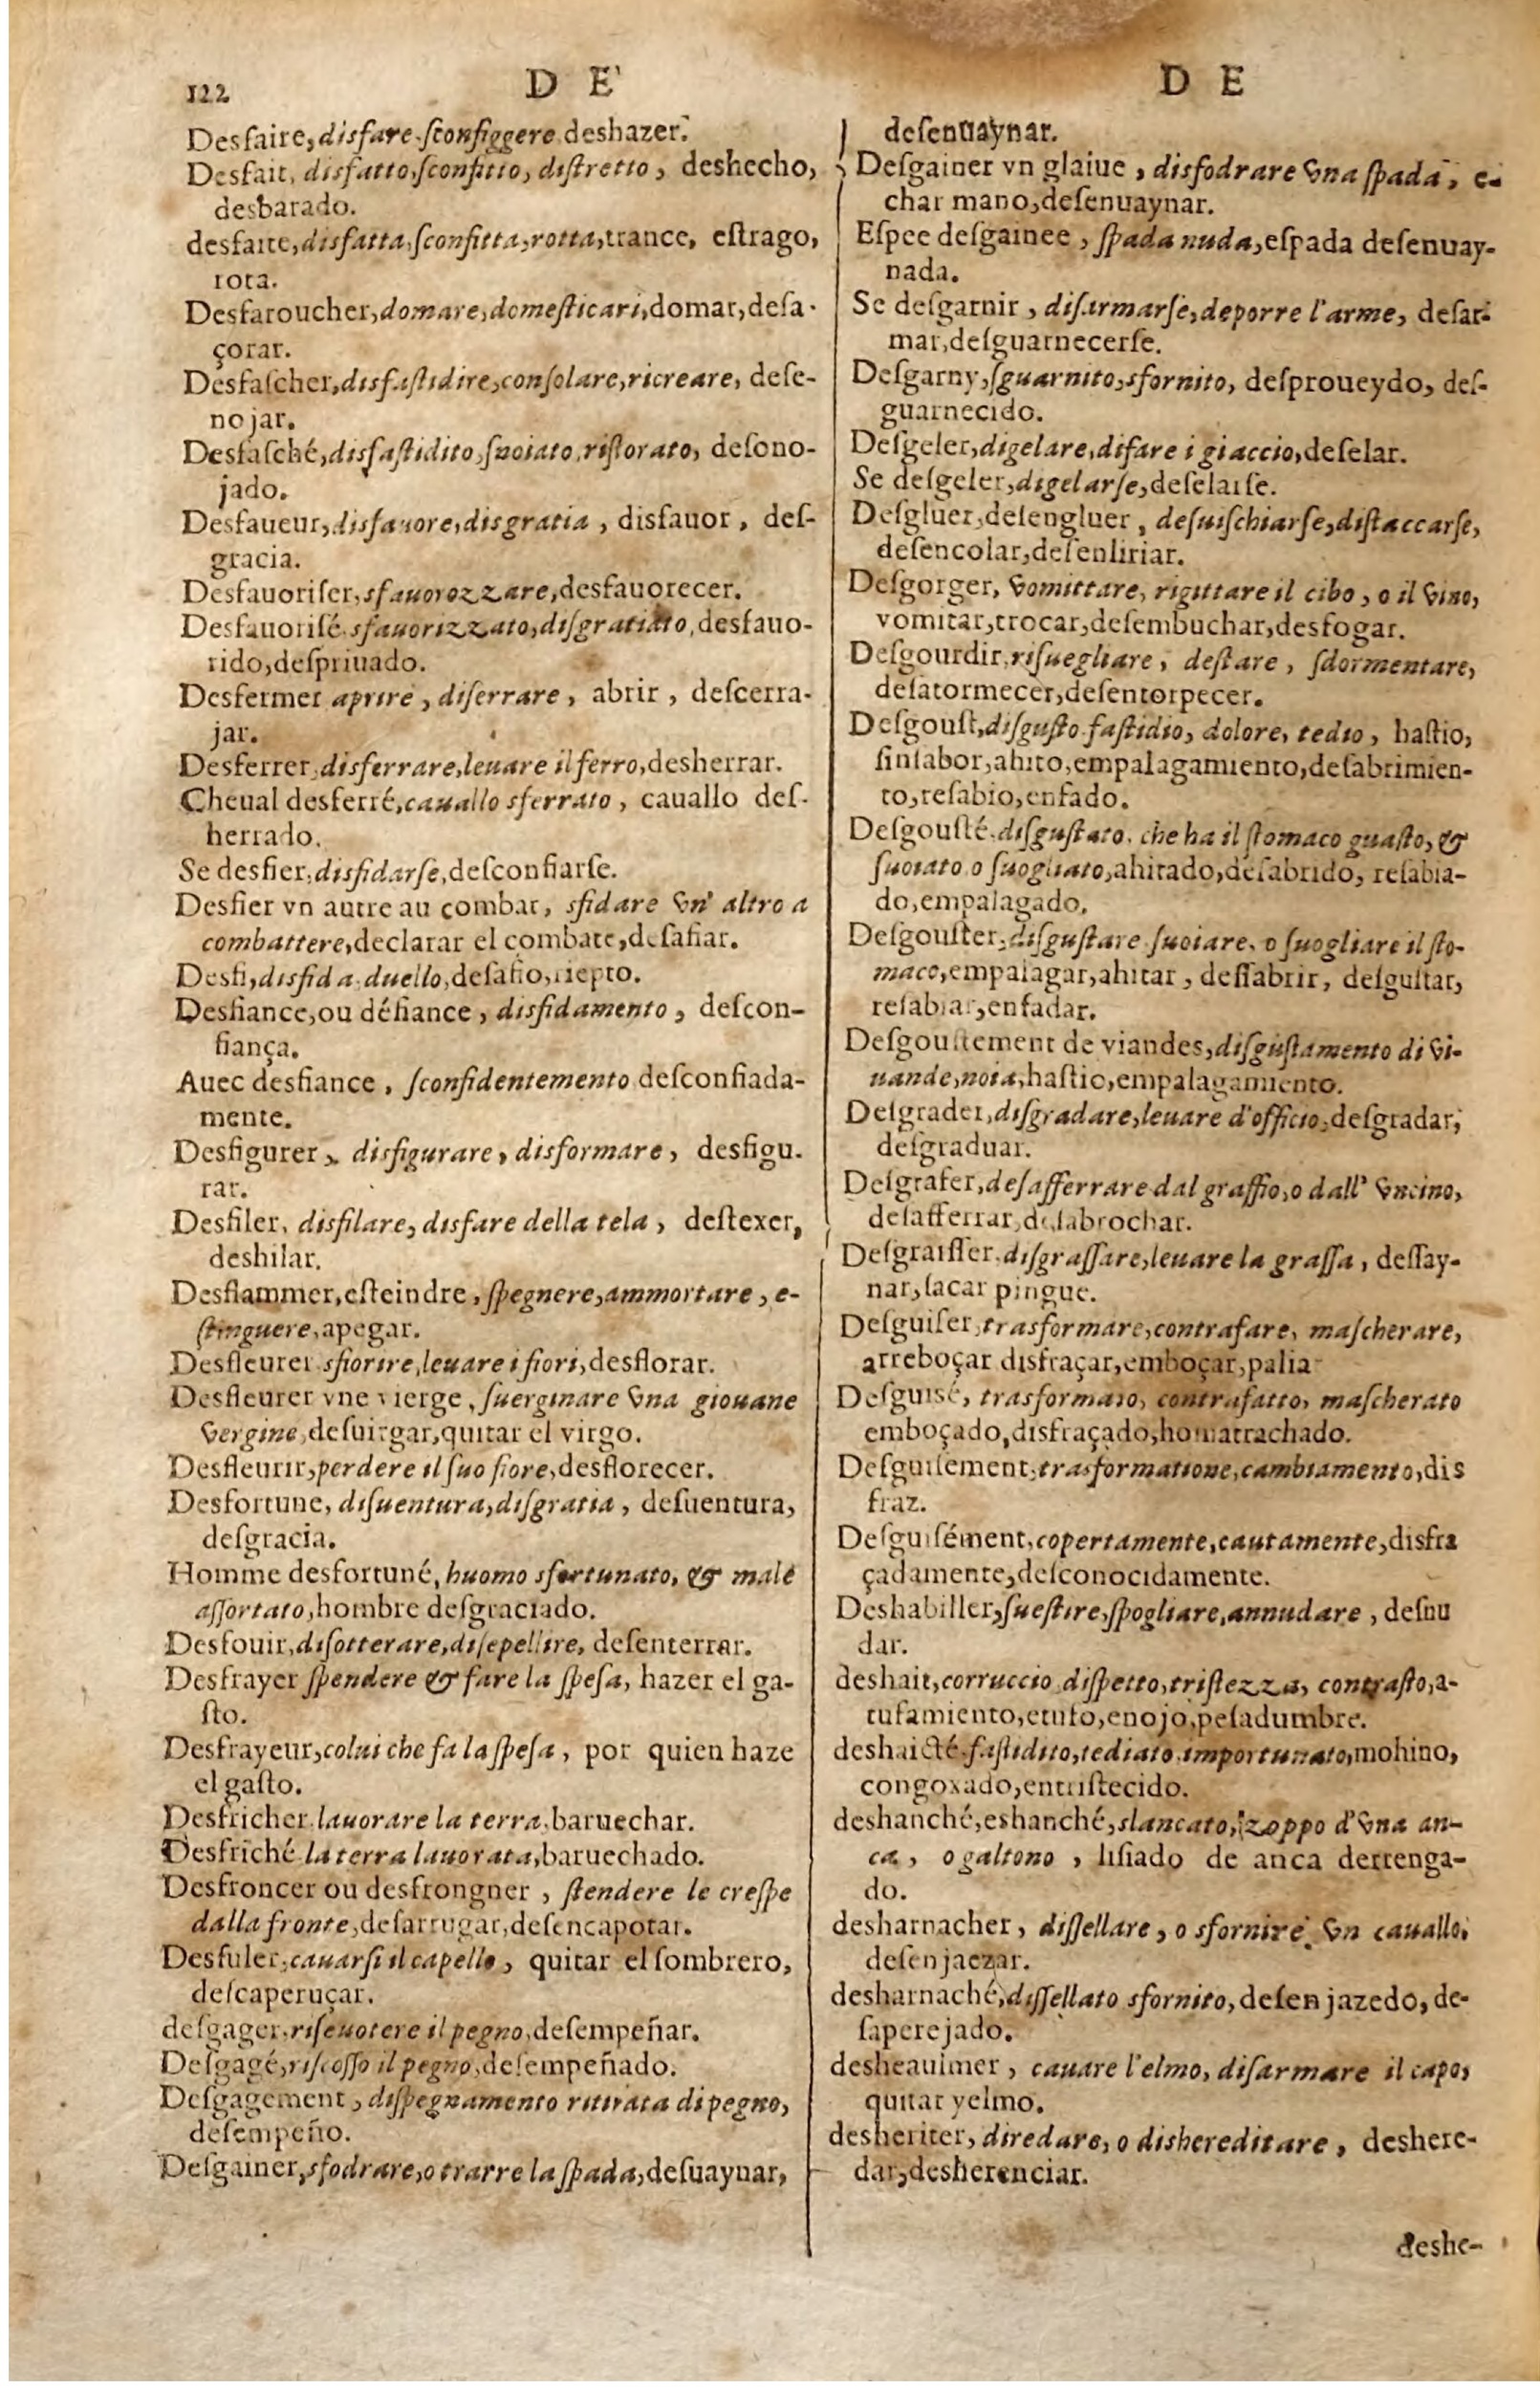 122 DE DE
Desfaire, disfare sconfiggere deshazer.
Desfait, disfatto, ſconfitto, diſtretto, deshecho,
desbarado.
desfaite, disfatta, ſconfitta, rotta, trance, eſtrago,
rota.
Desfaroucher, domare, domeſticari, domar, deſa-
çorar.
Desfaſcher, disfaſtidire, conſolare, ricreare, deſe-
nojar.
Desfaſché, disfaſtidito, ſnoiato, riſtorato, deſono-
jado.
Desfaueur, disfauore, disgratia, disfauor, deſ-
gracia.
Desfauoriſer, sfauorozzare, desfauorecer.
Desfauoriſé sfauorizzato, diſgratiato, desfauo-
rido, deſpriuado.
Desfermer aprire, diſerrare, abrir, deſcerra-
jar.
Desferrer, disferrare, leuare il ferro, desherrar.
Cheual desferré, cauallo sferrato, cauallo deſ-
herrado.
Se desfier, disfidarſe, deſconfiarſe.
Desfier vn autre au combat, sfidare vn' altro a
combattere, declarar el combate, deſafiar.
Desfi, disfida duello, deſafio, riepto.
Desfiance, ou défiance, disfidamento, deſcon-
fiança.
Auec desfiance, ſconfidentemento deſconfiada-
mente.
Desfigurer, disfigurare, disformare, desfigu.
rar.
Desfiler, disfilare, disfare della tela, deſtexer,
deshilar.
Desflammer, eſteindre, ſpegnere, ammortare, e-
ſtinguere, apegar.
Desfleurer sfiorire, leuare i fiori, desflorar.
Desfleurer vne vierge, ſuerginare vna giouane
vergine, deſuirgar, quitar el virgo.
Desfleurir, perdere il ſuo fiore, desflorecer.
Desfortune, diſuentura, diſgratia, deſuentura,
deſgracia.
Homme desfortuné, huomo sfortunato, & male
aſſortato, hombre deſgraciado.
Desfouir, diſotterare, diſepellire, deſenterrar.
Desfrayer ſpendere & fare la ſpeſa, hazer el ga-
ſto.
Desfrayeur, colui che fa la ſpeſa, por quien haze
el gaſto.
Desfricher lauorare la terra, baruechar.
Desfriché la terra lauorata, baruechado.
Desfroncer ou desfrongner, ſtendere le creſpe
dalla fronte, deſarrugar, deſencapotar.
Desfuler, cauarſi il capello, quitar el ſombrero,
deſcaperuçar.
deſgager, riſeuotere il pegno, deſempeñar.
Deſgagé, riſcoſſo il pegno, deſempeñado.
Deſgagement, diſpegnamento ritirata di pegno,
deſempeño.
Deſgainer, sfodrare, o trarre la ſpada, deſuaynar,
deſenuaynar.
Deſgainer vn glaiue, disfodrare vna ſpada, e-
char mano, deſenuaynar.
Eſpee deſgainee, ſpada nuda, eſpada deſenuay-
nada.
Se deſgarnir, diſarmarſe, deporre l'arme, deſar-
mar, deſguarnecerſe.
Deſgarny, ſguarnito, sfornito, deſproueydo, deſ-
guarnecido.
Deſgeler, digelare, difare i giaccio, deſelar.
Se deſgeler, digelarſe, deſelarſe.
Deſgluer, deſengluer, deſuiſchiarſe, diſtaccarſe,
deſencolar, deſenliriar.
Deſgorger, vomittare, rigittare il cibo, o il vino,
vomitar, trocar, deſembuchar, desfogar.
Deſgourdir, riſuegliare, deſtare, ſdormentare,
deſatormecer, deſentorpecer.
Deſgouſt, diſguſto faſtidio, dolore, tedio, haſtio,
ſinſabor, ahito, empalagamiento, deſabrimien-
to, reſabio, enfado.
Deſgouſté diſguſtato, che ha il ſtomaco guaſto, &
ſuoiato o ſuogliato, ahitado, deſabrido, reſabia-
do, empalagado.
Deſgouſter, diſguſtare ſuoiare, o ſuogliare il ſto-
maco, empalagar, ahitar, deſſabrir, deſguſtar,
reſabiar, enfadar.
Deſgouſtement de viandes, diſguſtamento di vi-
uande, noia, haſtio, empalagamiento.
Deſgrader, diſgradare, leuare d'officio, deſgradar,
deſgraduar.
Deſgrafer, deſafferrare dal graffio, o dall' vncino,
deſafferrar, deſabrochar.
Deſgraiſſer, diſgraſſare, leuare la graſſa, deſſay-
nar, ſacar pingue.
Deſguiſer, trasformare, contrafare, maſcherare,
arreboçar disfraçar, emboçar, palia
Deſguisé, trasformato, contrafatto, maſcherato
emboçado, disfraçado, homarrachado.
Deſguiſement, trasformatione, cambiamento, dis
fraz.
Deſguiſément, copertamente, cautamente, disfra
çadamente, deſconocidamente.
Deshabiller, ſueſtire, ſpogliare, annudare, deſnu
dar.
deshait, corruccio diſpetto, triſtezza, contraſto, a-
tufamiento, etufo, enojo, peſadumbre.
deshaicté faſtidito, tediato importunato, mohino,
congoxado, entriſtecido.
deshanché, eshanché, slancato, zoppo d'vna an-
ca, o galtono, liſiado de anca derrenga-
do.
desharnacher, diſſellare, o sfornire vn cauallo,
deſenjaezar.
desharnaché, diſſellato sfornito, deſenjazedo, de-
ſaperejado.
desheaulmer, cauare l'elmo, diſarmare il capo,
quitar yelmo.
desheriter, diredare, o dishereditare, deshere-
dar, desherenciar.
deshe-